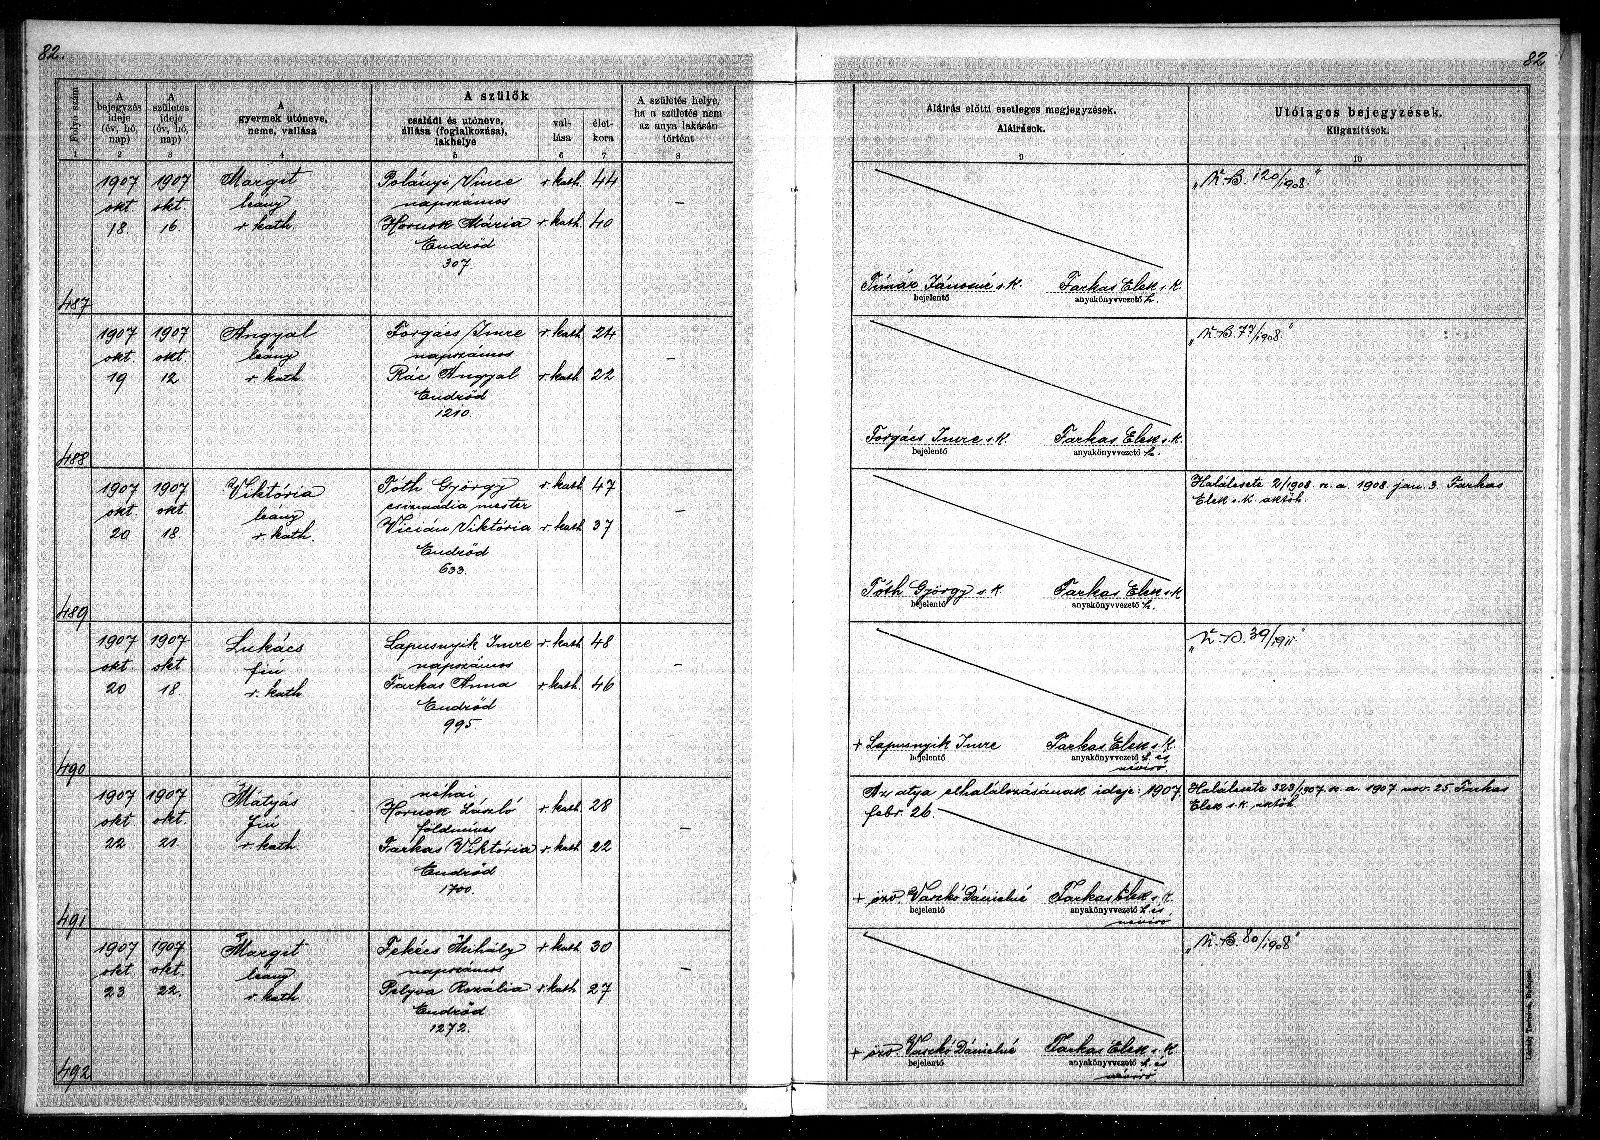 82.
82
Folyó szám
A bejegyzés ideje (év, hó, nap)
A születés ideje (év, hó, nap)
A gyermek utóneve, neme, vallása
A szülők
családi és utóneve, állása (foglalkozása), lakhelye
vallása
életkora
A születés helye, ha a születés nem az anya lakásán történt
Aláírás előtti esetleges megjegyzések.
Aláírások.
Utólagos bejegyzések.
Kiigazítások.
1 2 3 4 5 6 7 8 9 10
1907 1907 Margit Polányi Vince r. kath. 44 „N. B. 120/1908"
okt okt. leány napszámos –
18. 16. r kath. Hornok Mária r. kath. 40
Endrőd
307
Tímár Jánosné s. k. Farkas Elek s. k.
bejelentő anyakönyvvezető h.
487
1907 1907 Angyal Forgács Imre r. kath. 24 „N. B. 77/1908"
okt okt. leány napszámos –
19 12 r kath. Rác Angyal r. kath. 22
Endrőd
1210.
Forgács Imre s. k. Farkas Elek s. k.
bejelentő anyakönyvvezető h.
488
1907 1907 Viktória Tóth György r. kath. 47 Halálesete 2/1908 n. a. 1908. jan. 3. Farkas
okt okt. leány csizmadia mester – Elek s. k. aktőh
20 18. r kath. Vicián Viktória r. kath. 37
Endrőd
633.
Tóth György s. k. Farkas Elek s. k
bejelentő anyakönyvvezető h.
489
1907 1907 Lukács Lapusnyik Imre r. kath. 48 „N. B. 39/1911"
okt okt fiú napszámos –
20 18. r. kath. Farkas Anna r. kath. 46
Endrőd
995.
+ Lapusnyik Imre Farkas Elek s. k.
bejelentő anyakönyvvezető h. és
névíró
490
1907 1907 Mátyás néhai Az atya elhalálozásának ideje: 1907. Halálesete 323/1907 n. a. 1907 nov. 25. Farkas
okt okt. fiú Hornok László r. kath. 28 febr. 26. Elek s. k. aktőh
földmíves –
22 21. r kath. Farkas Viktória r. kath. 22
Endrőd
1700.
+ özv. Vaszkó Dánielné Farkas Elek s. k.
bejelentő anyakönyvvezető h. és
névíró
491
1907 1907 Margit Fekécs Mihály r. kath. 30 „N. B. 80/1908"
okt okt. leány napszámos –
23 22. r kath. Pelyva Rozália r. kath. 27
Endrőd
1272.
+ özv. Vaszkó Dánielné Farkas Elek s. k.
bejelentő anyakönyvvezető h. és
névíró
492